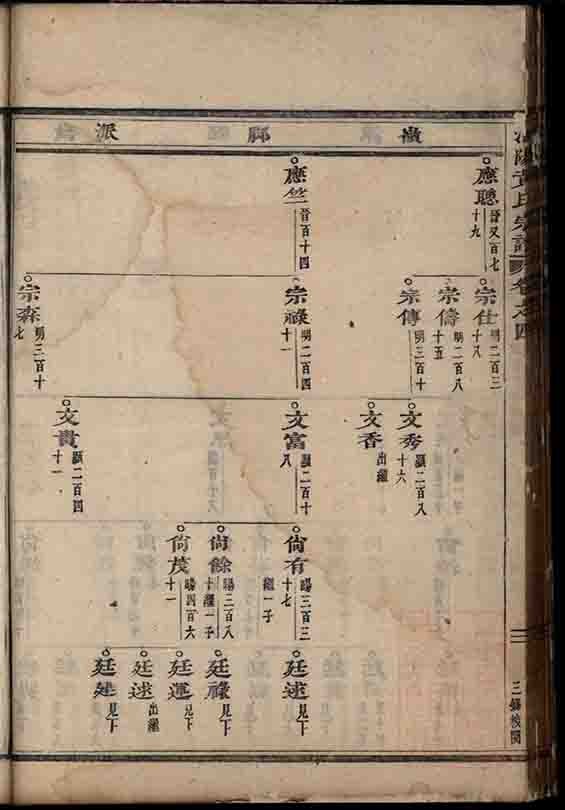 派 鄉 橫
黃氏宗譜 卷之四
應聰 晉又百七十九
應竺 晉百十四
宗仕 明二百三十八
宗儔 明二百八十五
宗傳 明三百十
宗祿 明二百四十一
宗森 明三百十七
文秀 顯二百八十六
文香 出繼
文富 顯二百十八
文貴 顯二百四十一
尙有 暘三百三十七 繼一子
尙餘 暘三百八十 繼一子
尙茂 暘四百六十一
廷述 見下
廷祿 見下
廷運 見下
廷逑 出繼
廷建 見下
三錫校閱